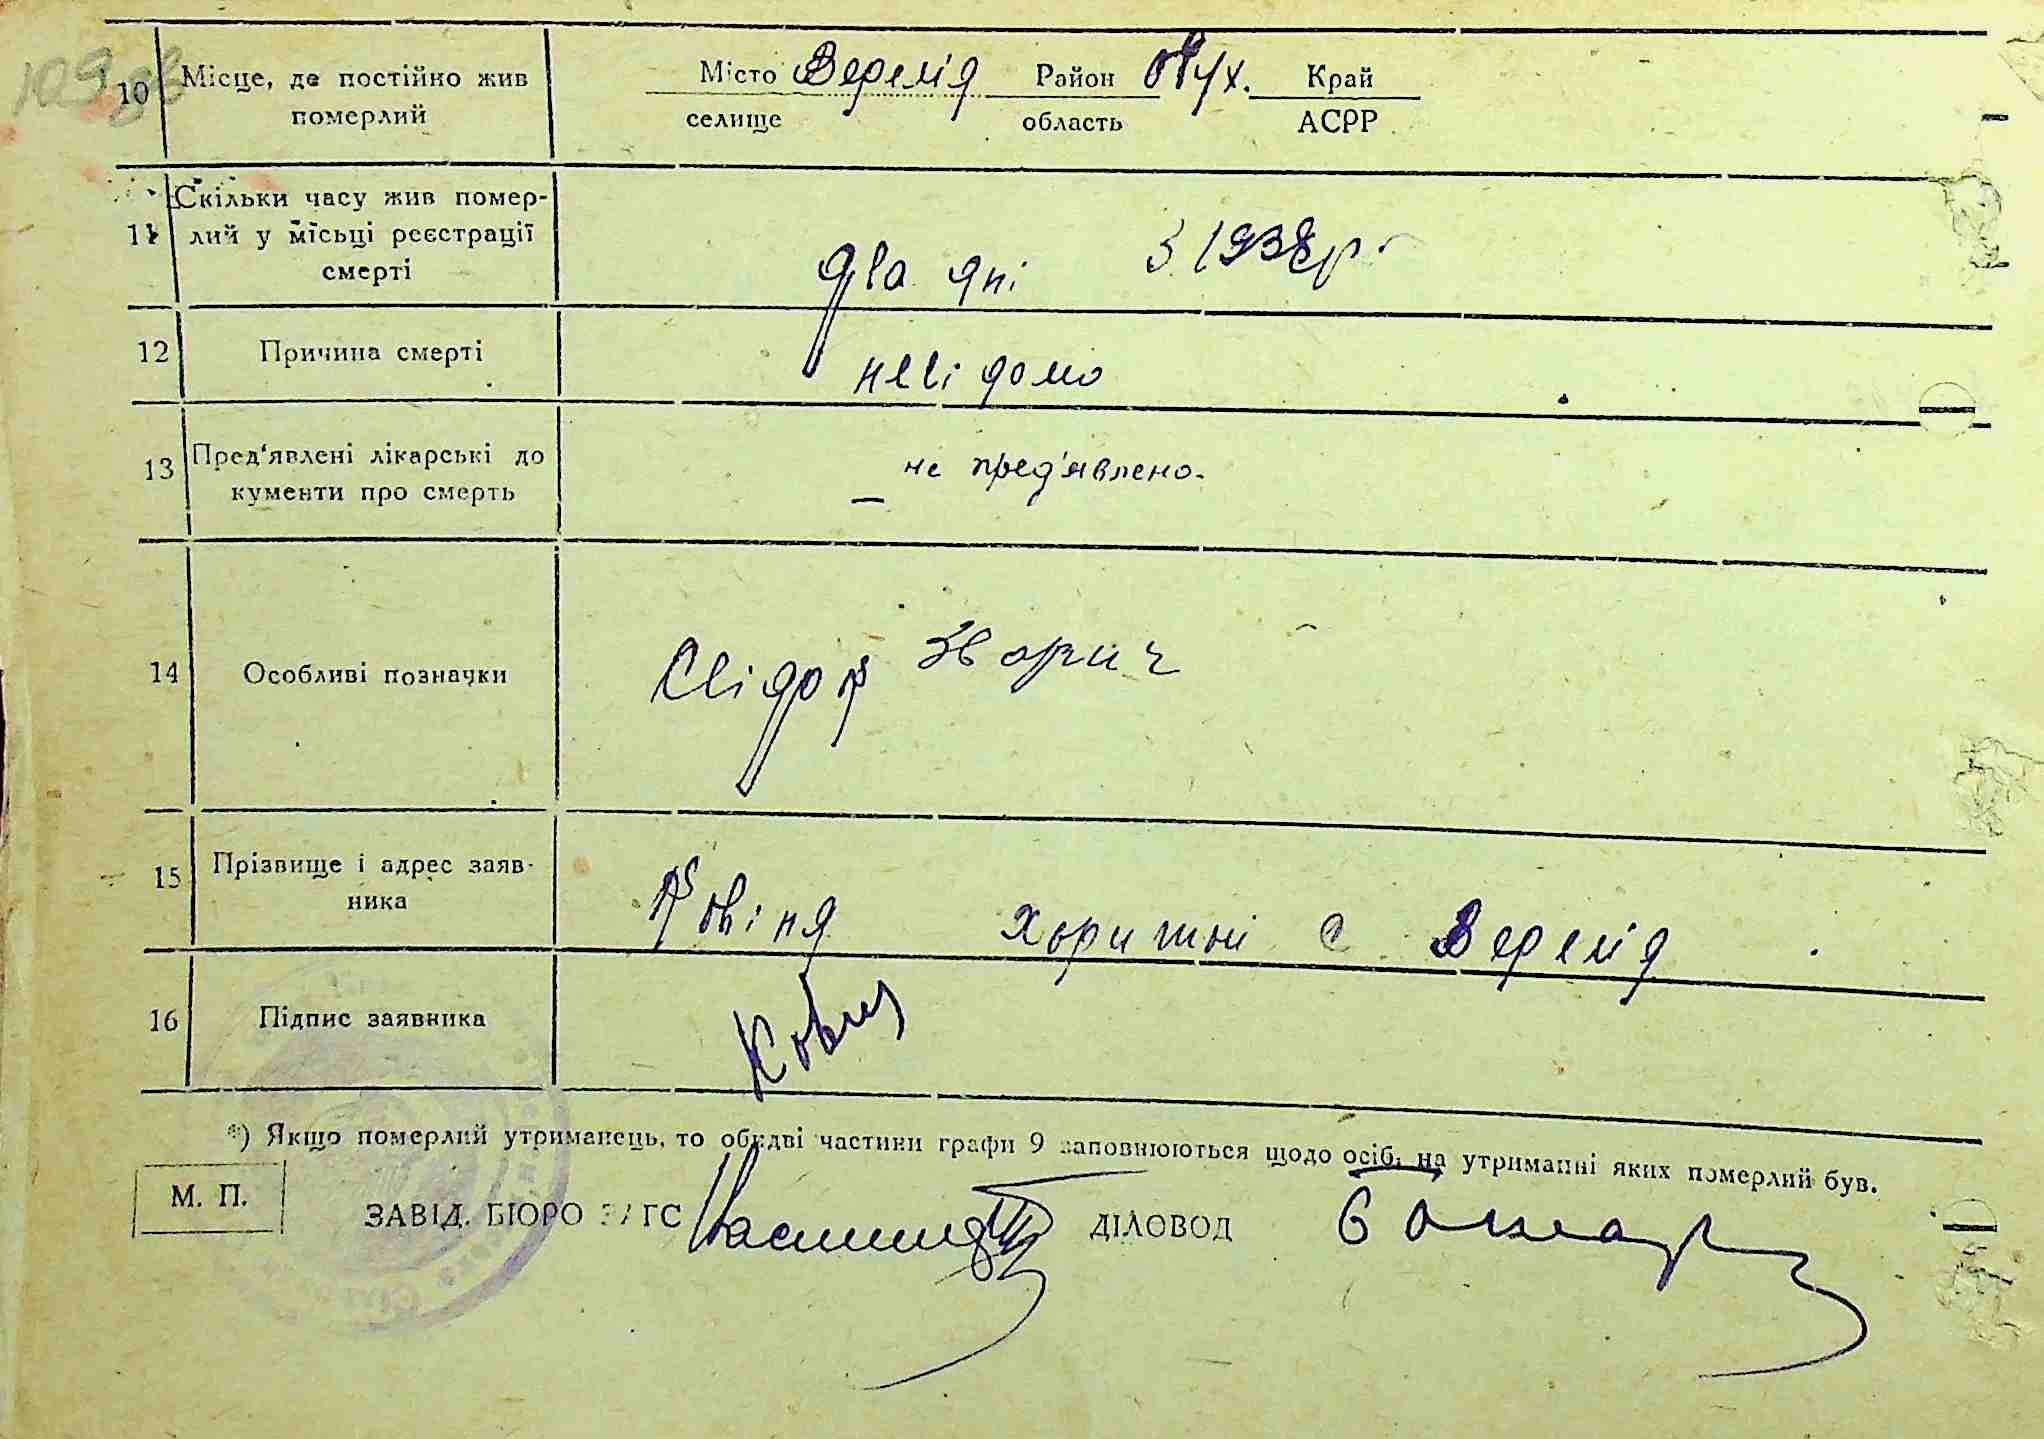 109зв
10 Місце, де постійно жив Місто Веремія Район Обух. Край
померлий селище область АСРР
11 Скільки часу жив помер-
лий у місьці реєстрації
смерті два дні з 1932р.
12 Причина смерті невідомо
13 Пред'явлені лікарські до
кументи про смерть не пред'явлено.
14 Особливі позначки Свідок Зворич
15 Прізвище і адрес заяв-
ника Ковіня с Веремія
16 Підпис заявника
*) Якщо померлий утриманець, то обидві частини графи 9 заповнюються щодо осіб, на утриманні яких померлий був.
М. П. ЗАВІД. БЮРО ЗАГС ДІЛОВОД